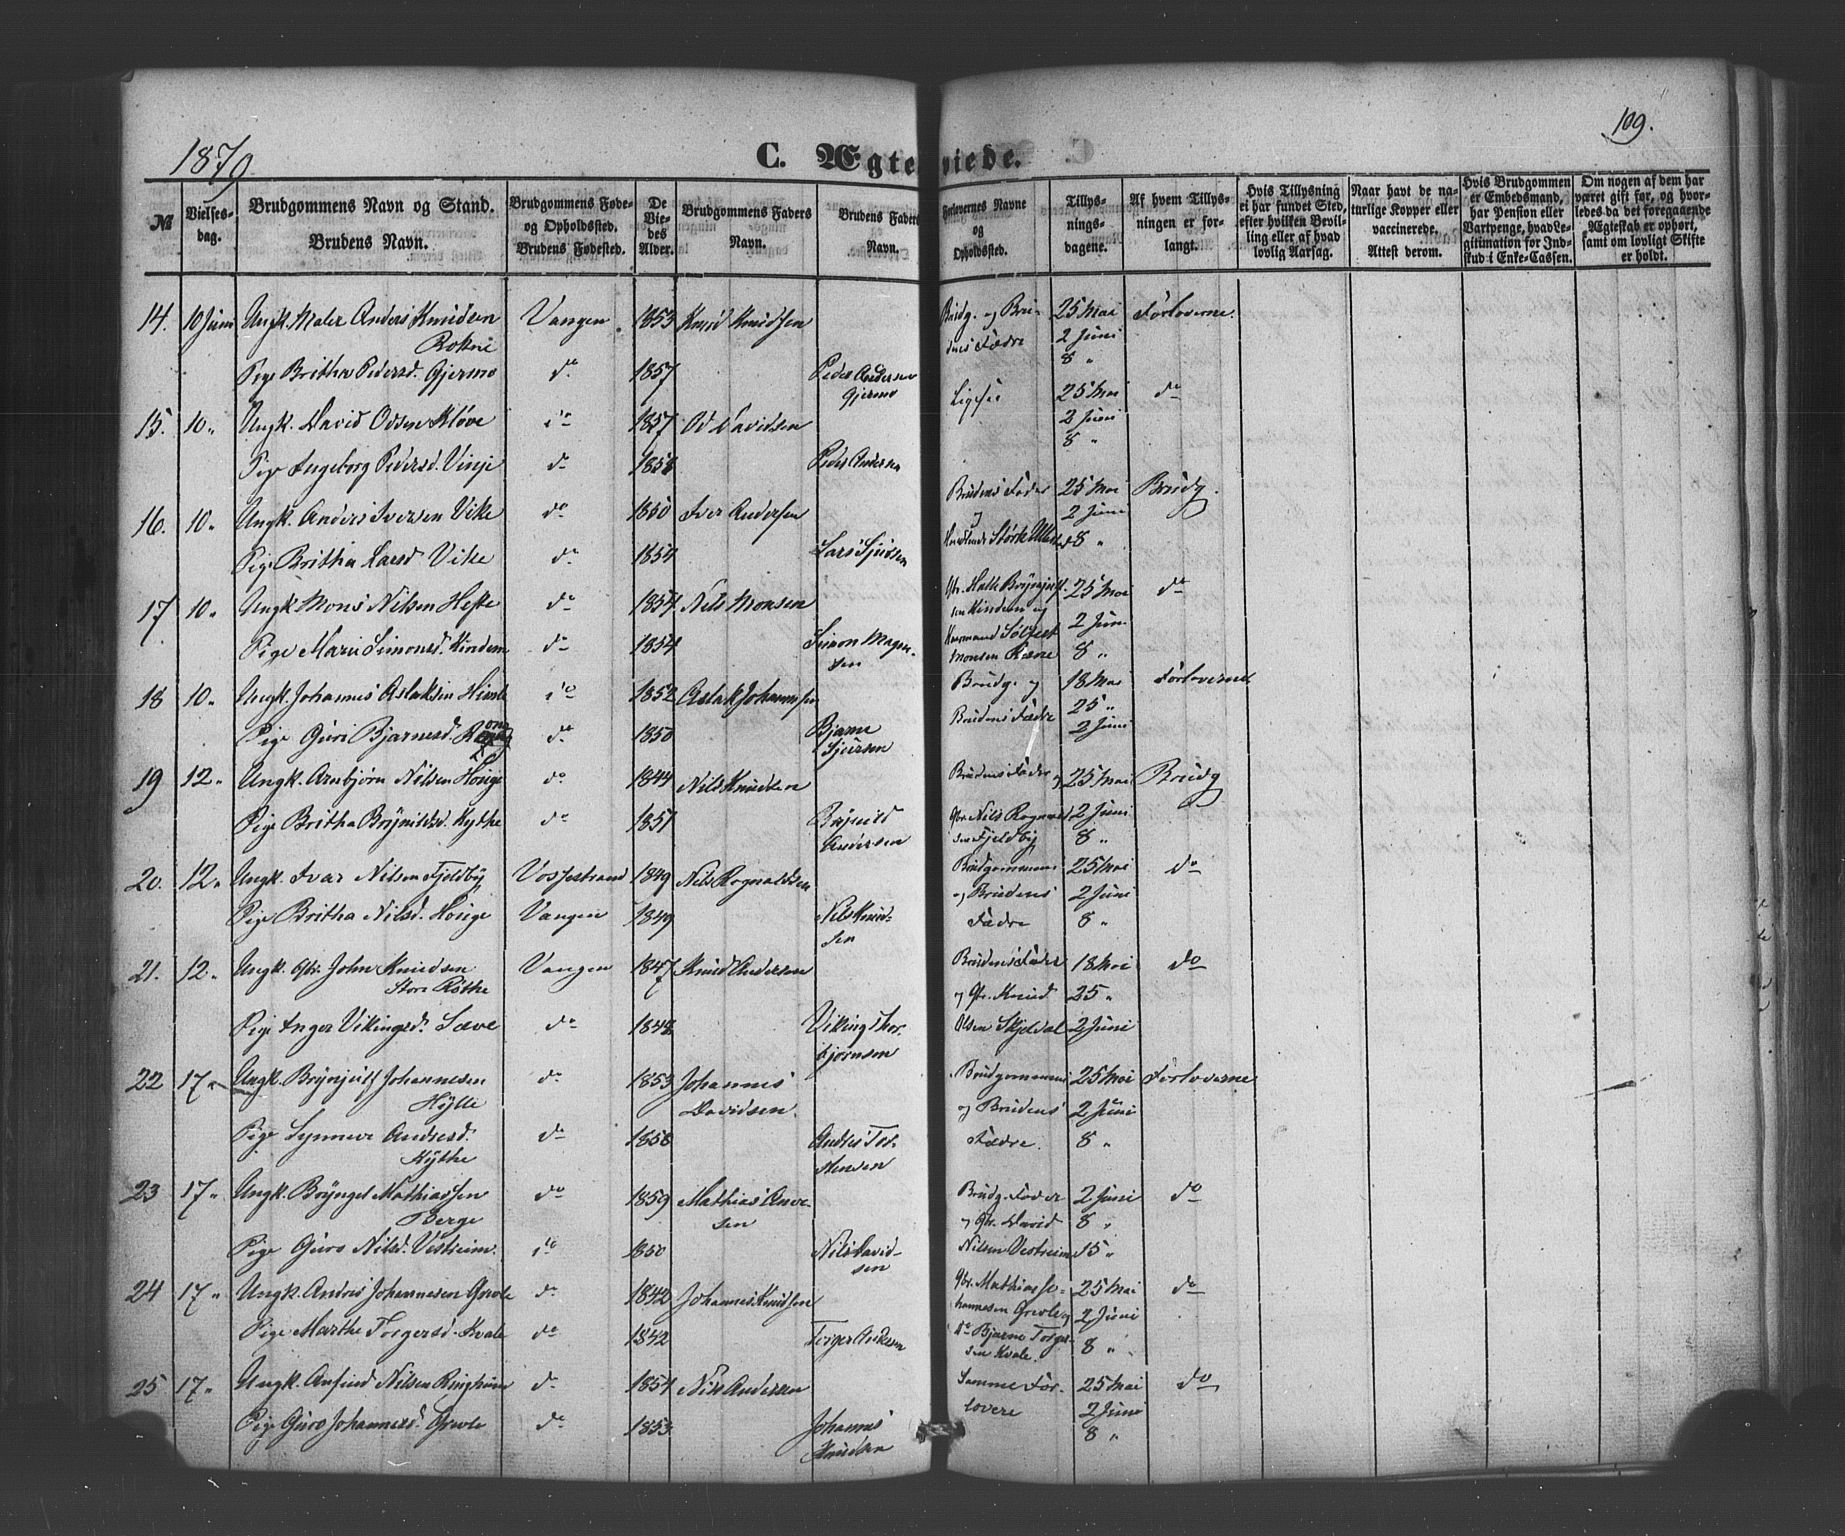 1879
109.
C. Ægteviede.
№ | Vielses-dag. | Brudgommens Navn og Stand. Brudens Navn. | Brudgommens Føde- og Opholdssted. Brudens Fødested. | De Viedes Alder. | Brudgommens Faders Navn. | Brudens Faders Navn. | Forlovernes Navne og Opholdssted. | Tillysningsdagene. | Af hvem Tillysningen er forlangt. | Hvis Tillysning ei har fundet Sted, efter hvilken Bevilling eller af hvad lovlig Aarsag. | Naar havt de naturlige Kopper eller vaccinerede. Attest derom. | Hvis Brudgommen er Embedsmand, har Pension eller Vartpenge, hvad Legitimation for Indskud i Enke-Cassen. | Om nogen af dem har været gift før, og hvorledes da det foregaaende Ægteskab er ophørt, samt om lovligt Skifte er holdt.
14. 10 Juni Ungk. Maler Anders Knudsen Vangen. 1853 Knud Knudsen Brudg. og Bru- 25 Mai Forloverne.
Rokne dens Fædre 2 Juni
Pige Britha Pedersd. Gjermo do 1857 Peder Andersen 8 "
Gjermo
15. 10 " Ungk. David Odsen Kløve do 1857 Od Davidsen Ligesaa 25 Mai do
2 Juni
Pige Ingeborg Pedersd. Vinje do 1858 Peder Andersen 8 "
16. 10 " Ungk. Anders Iversen Vike do 1850 Iver Andersen Brudens Fader 25 Mai Brudg.
og 2 Juni
Pige Britha Larsd Vike do 1854 Lars Sjursen Størk 8 "
17 10 " Ungk Mons Nilsen Hefte do 1854 Nils Monsen Gbr. Halle Brynjulf- 25 Mai do
sen Kindem og 2 Juni
Pige Mari Simonsd. Kindem do 1854 Simon Magne- Sølfest
sen Monsen Rene 8 "
18 10 " Ungk. Johannes Aslaksen Himle do 1852 Aslak Johannessen Brudg. og 18 Mai Forloverne
25 "
Pige Guri Bjarnesd. Rong do 1850 Bjarne Brudens Fædre 2 Juni
Sjursen
19 12 " Ungk. Arnbjørn Nilsen Horige do 1844 Nils Knudsen Brudens Fader og 25 Mai Brudg
Pige Britha Brynildsd. Kythe do 1857 Brynild Gbr. Nils Rognald 2 Juni
Andersen sen Fjeldby 8 "
20. 12 " Ungk. Ivar Nilsen Fjeldby Vossestrand 1849 Nils Rognaldsen Brudgommens 25 Mai do
og Brudens 2 Juni
Pige Britha Nilsd. Horige Vangen 1849 Nils Knud- Fædre 8 "
sen
21. 12 " Ungk. Gbr. John Knudsen Vangen 1847 Knud Andersen Brudens Fader 18 Mai do
Store Røthe og Gbr. Knud 25 "
Pige Inger Vikingsd. Sæve do 1848 Viking Thor- Olsen Skjelval 2 Juni
bjørnsen
22 17 " Ungk. Brynjulf Johannesen do 1853 Johannes Brudgommens 25 Mai Forloverne
Hylle Davidsen og Brudens 2 Juni
Pige Synneve Andersd. do 1858 Anders Tor- Fædre. 8 "
Kythe stensen
23 17 " Ungk. Bryngel Mathiassen do 1859 Mathias Anve- Brudg. Fader 2 Juni do
Berge sen og Gbr. David 8 "
Pige Guro Nilsd. Vestreim. do 1850 Nils David- Nilsen Vestreim 15 "
sen
24 17 " Ungk. Andres Johannesen Grevle do 1842 Johannes Knudsen Gbr. Mathias Jo- 25 Mai do
hannesen Grevle og 2 Juni
Pige Marthe Torgersd. Kvale do 1842 Torger do Bjarne Torger-
sen Kvale. 8 "
25 17 " Ungk. Anfind Nilsen Ringheim do 1854 Nils Andersen Samme For- 25 Mai do
lovere 2 Juni
Pige Guro Johannesd. Grevle do 1853 Johannes 8 "
Knudsen